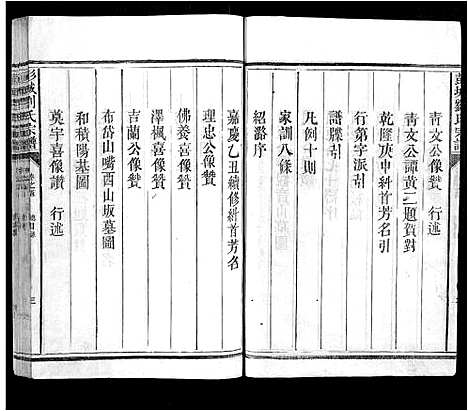 彭城劉氏宗譜
青文公像贊　行述
青文公譚黃二題賀對
乾隆庚申糾首芳名引
行第字派引
譜牒引
凡例十則
家訓八條
紹谿序
嘉慶乙丑續修糾首芳名
理忠公像贊
佛養喜像贊
澤楓喜像贊
吉蘭公像贊
布岱山嘴酉山坂墓圖
和積陽基圖
奠宇喜像讚　行述
彭城劉氏宗譜
三